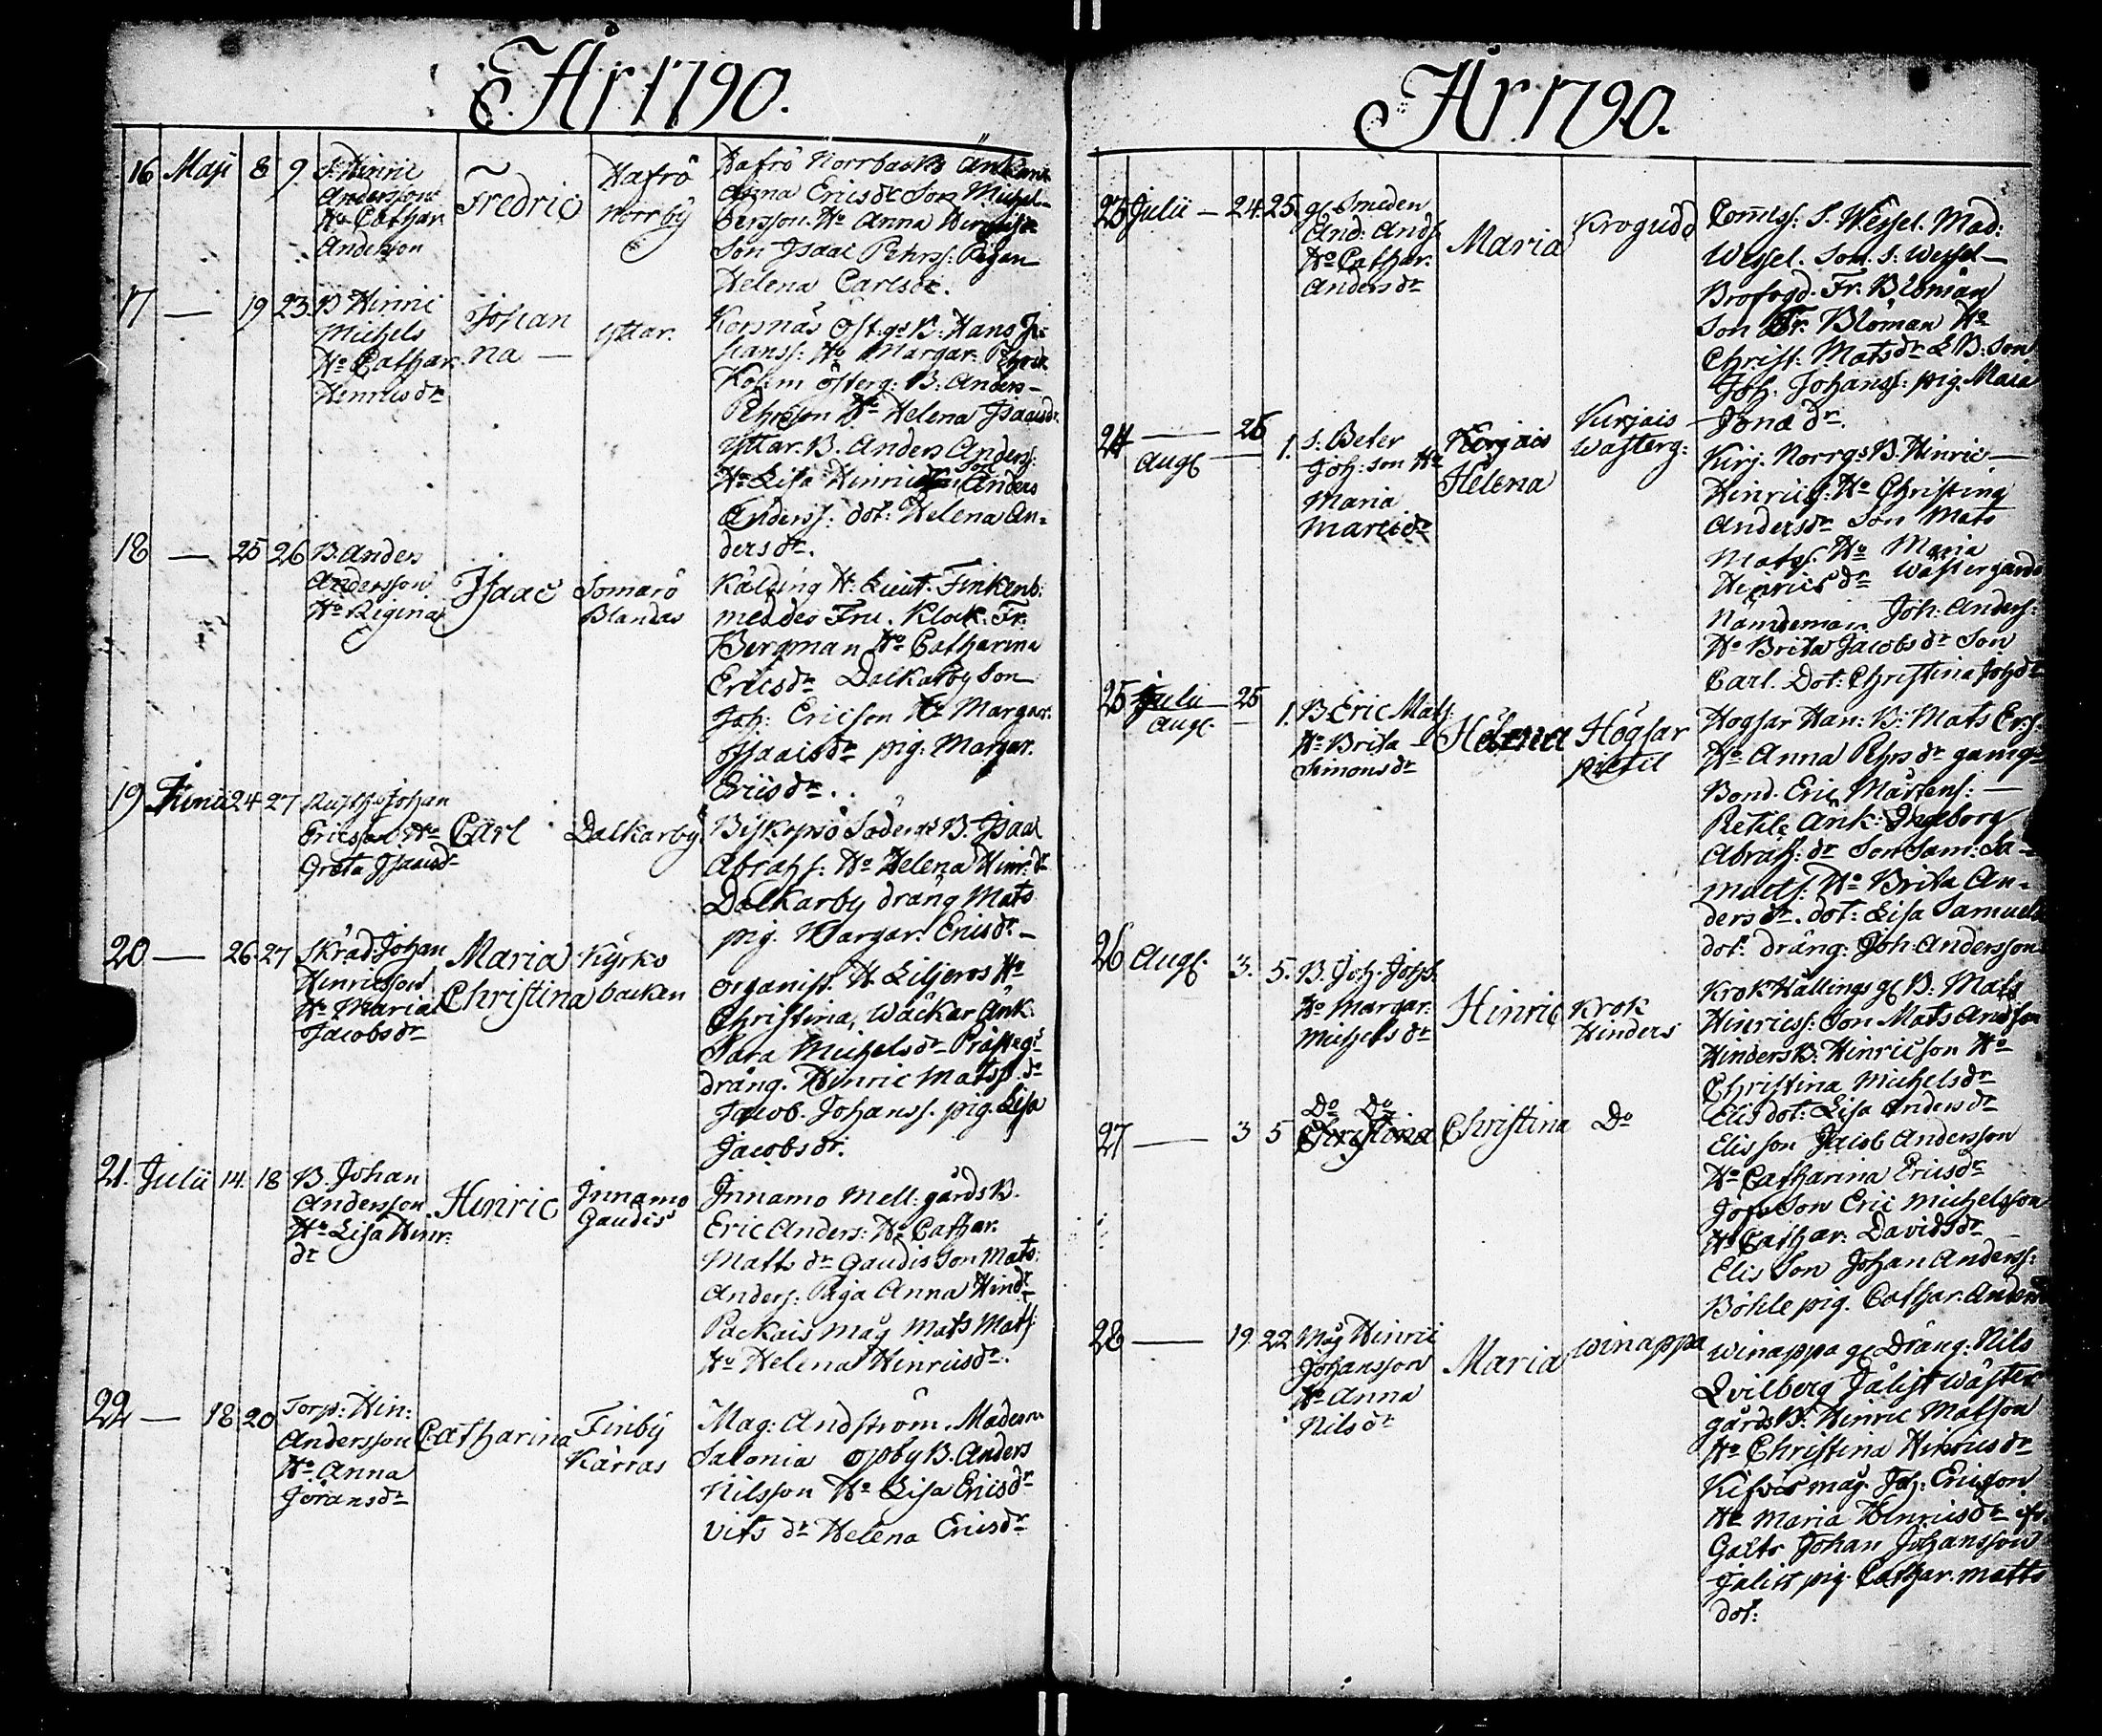 År 1790.
16 Maji 8 9. S. Hinric
Andersson
Hu Cathar.
Anderson
Fredric
Hafrö
Norrby
Hafrö Norrbacks Änkan
Anna Ericsdr Son Michel
Persson. Hu Anna Hinricsdr
Son Isaac Pehrss: Pigan
Helena Carlsdr.
17 — 19 23 B Hinric
Michels
Hu Cathar.
Hinricsdr
Johan
na —
Yttar.
Korsnäs Öst.gs B. Hans Jo
hanss: Hu Margar: Pehrsdr
Österg: B. Anders —
Pehrsson Hu Helena Isaacsdr
Yttar. B. Anders Anderss:
Hu Lisa Hinricsdr Son Anders
Anderss: dot: Helena An-
dersdr.
18 — 25 26 B. Anders
Andersson
Hu Regina
Isaac
Somarö
Blandas
Kälding H: Lieut. Finkenb:
meddes Fru. Klock. Fr.
Bergman Hu Catharina
Ericsdr Dalkarby Son
Joh: Ericson Hu Margar.
Isaacsdr pig. Margar.
Ericsdr.
19 Junii 24 27 Rusth. Johan
Ericsson Hu
Greta Isaacsdr
Carl
Dalkarby
Biskopsö Söderg. B. Isaac
Abrahs: Hu Helena Hinr: dr
Dalkarby dräng Mats
pig. Margar. Ericsdr —
20 — 26. 27 Skräd. Johan
Hinricsson
Hu Maria
Jacobsdr
Maria
Christina
Kyrko
backen
Organist. H. Liljeros Hu
Christina, Wäckar Änk.
Sara Michelsdr Prästeg.
dräng. Hinric Matss. dr
Jacob. Johanss. pig. Lisa
Jacobsdr.
21. Julii 14. 18 B. Johan
Andersson
Hu Lisa Hinr.
dr
Hinric
Innamo
Gaudis
Innamo Mell: gårds B.
Eric Anders: Hu Cathar.
Matts dr Gaudis Son Mats.
Anders: Piga Anna Hindr
Packais måg Mats Mats:
Hu Helena Hinricsdr.
22 — 18 20 Torp: Hin:
Andersson
Hu Anna
Göransdr
Catharina
Finby
Kärras
Mag: Andström. Madem
Salonia opby B. Anders
Nilsson Hu Lisa Ericsdr
Vits dr Helena Ericsdr
År 1790.
23 Julii — 24. 25. gl Smeden
And: Ands
Hu Cathar.
Andersdr
Maria
Krogudd
Com̄iss: S. Wessel. Mad:
Wessel. Son. S: Wessel —
Brofogd. Fr. Bloman
Son Fr. Bloman Hu
Christ: Matsdr L B. Son
Joh. Johanss: pig. Maia
Jonæ dr.
24 — 26
Augs — 1. S: Peter
Joh: son Hu
Maria
Marcidr
Kirjais
Helena
Kirjais
Wästerg:
Kirj. Norrgs B. Hinric —
Hinrics: Hu Christina
Andersdr Son Mats
Matss. Hu Maria
Henricsdr Wästergårds
Nämdeman Joh: Anders:
Hu Brita Jacobsdr Son
Carl. Dot: Christina Johdr
25 Julii 25
Augs. — 1. B. Eric Mats
Hu Brita —
Simonsdr
Helena
Högsar
Prettil
Hogsar Han: B. Mats Ers:
Hu Anna Pehrsdr gamge
Bond. Eric Mårtens: —
Retele Änk: Ingeborg
Abrahs: dr Son Sam: Sa-
muels. Hu Brita An-
dersdr. dot: Lisa Samuels
dot: dräng: Joh: Andersson
26 Augs. 3. 5. B. Joh. Johs.
Hu Margar.
Michelsdr
Hinric
Krok
Hinders
Krok Hällings gl B. Mats
Hinricss: Son Mats Andsson
Hinders B: Hinricson Hu
Christina Michelsdr
Elis dot: Lisa Andersdr
27 — 3 5 Do Do
Christina
Christina
Do
Elis son Jacob Andersson
Hu Catharina Ericsdr
Son Eric Michelsson
Hu Cathar: Davidsdr
Elis Son Johan Anderss:
Böhle pig. Cathar. Andersdr
28 — 19. 22 Måg Hinric
Johansson
Hu Anna
Nilsdr
Maria
Winappa
Winappa gl Dräng: Nils
Qvilberg Jälist Wäster
gårds B: Hinric Matson
Hu Christina Hinricsdr
måg. Joh: Ericsson
Hu Maria Hinricsdr
Galts Johan Johansson
Jälist pig. Cathar. Matts
dot: